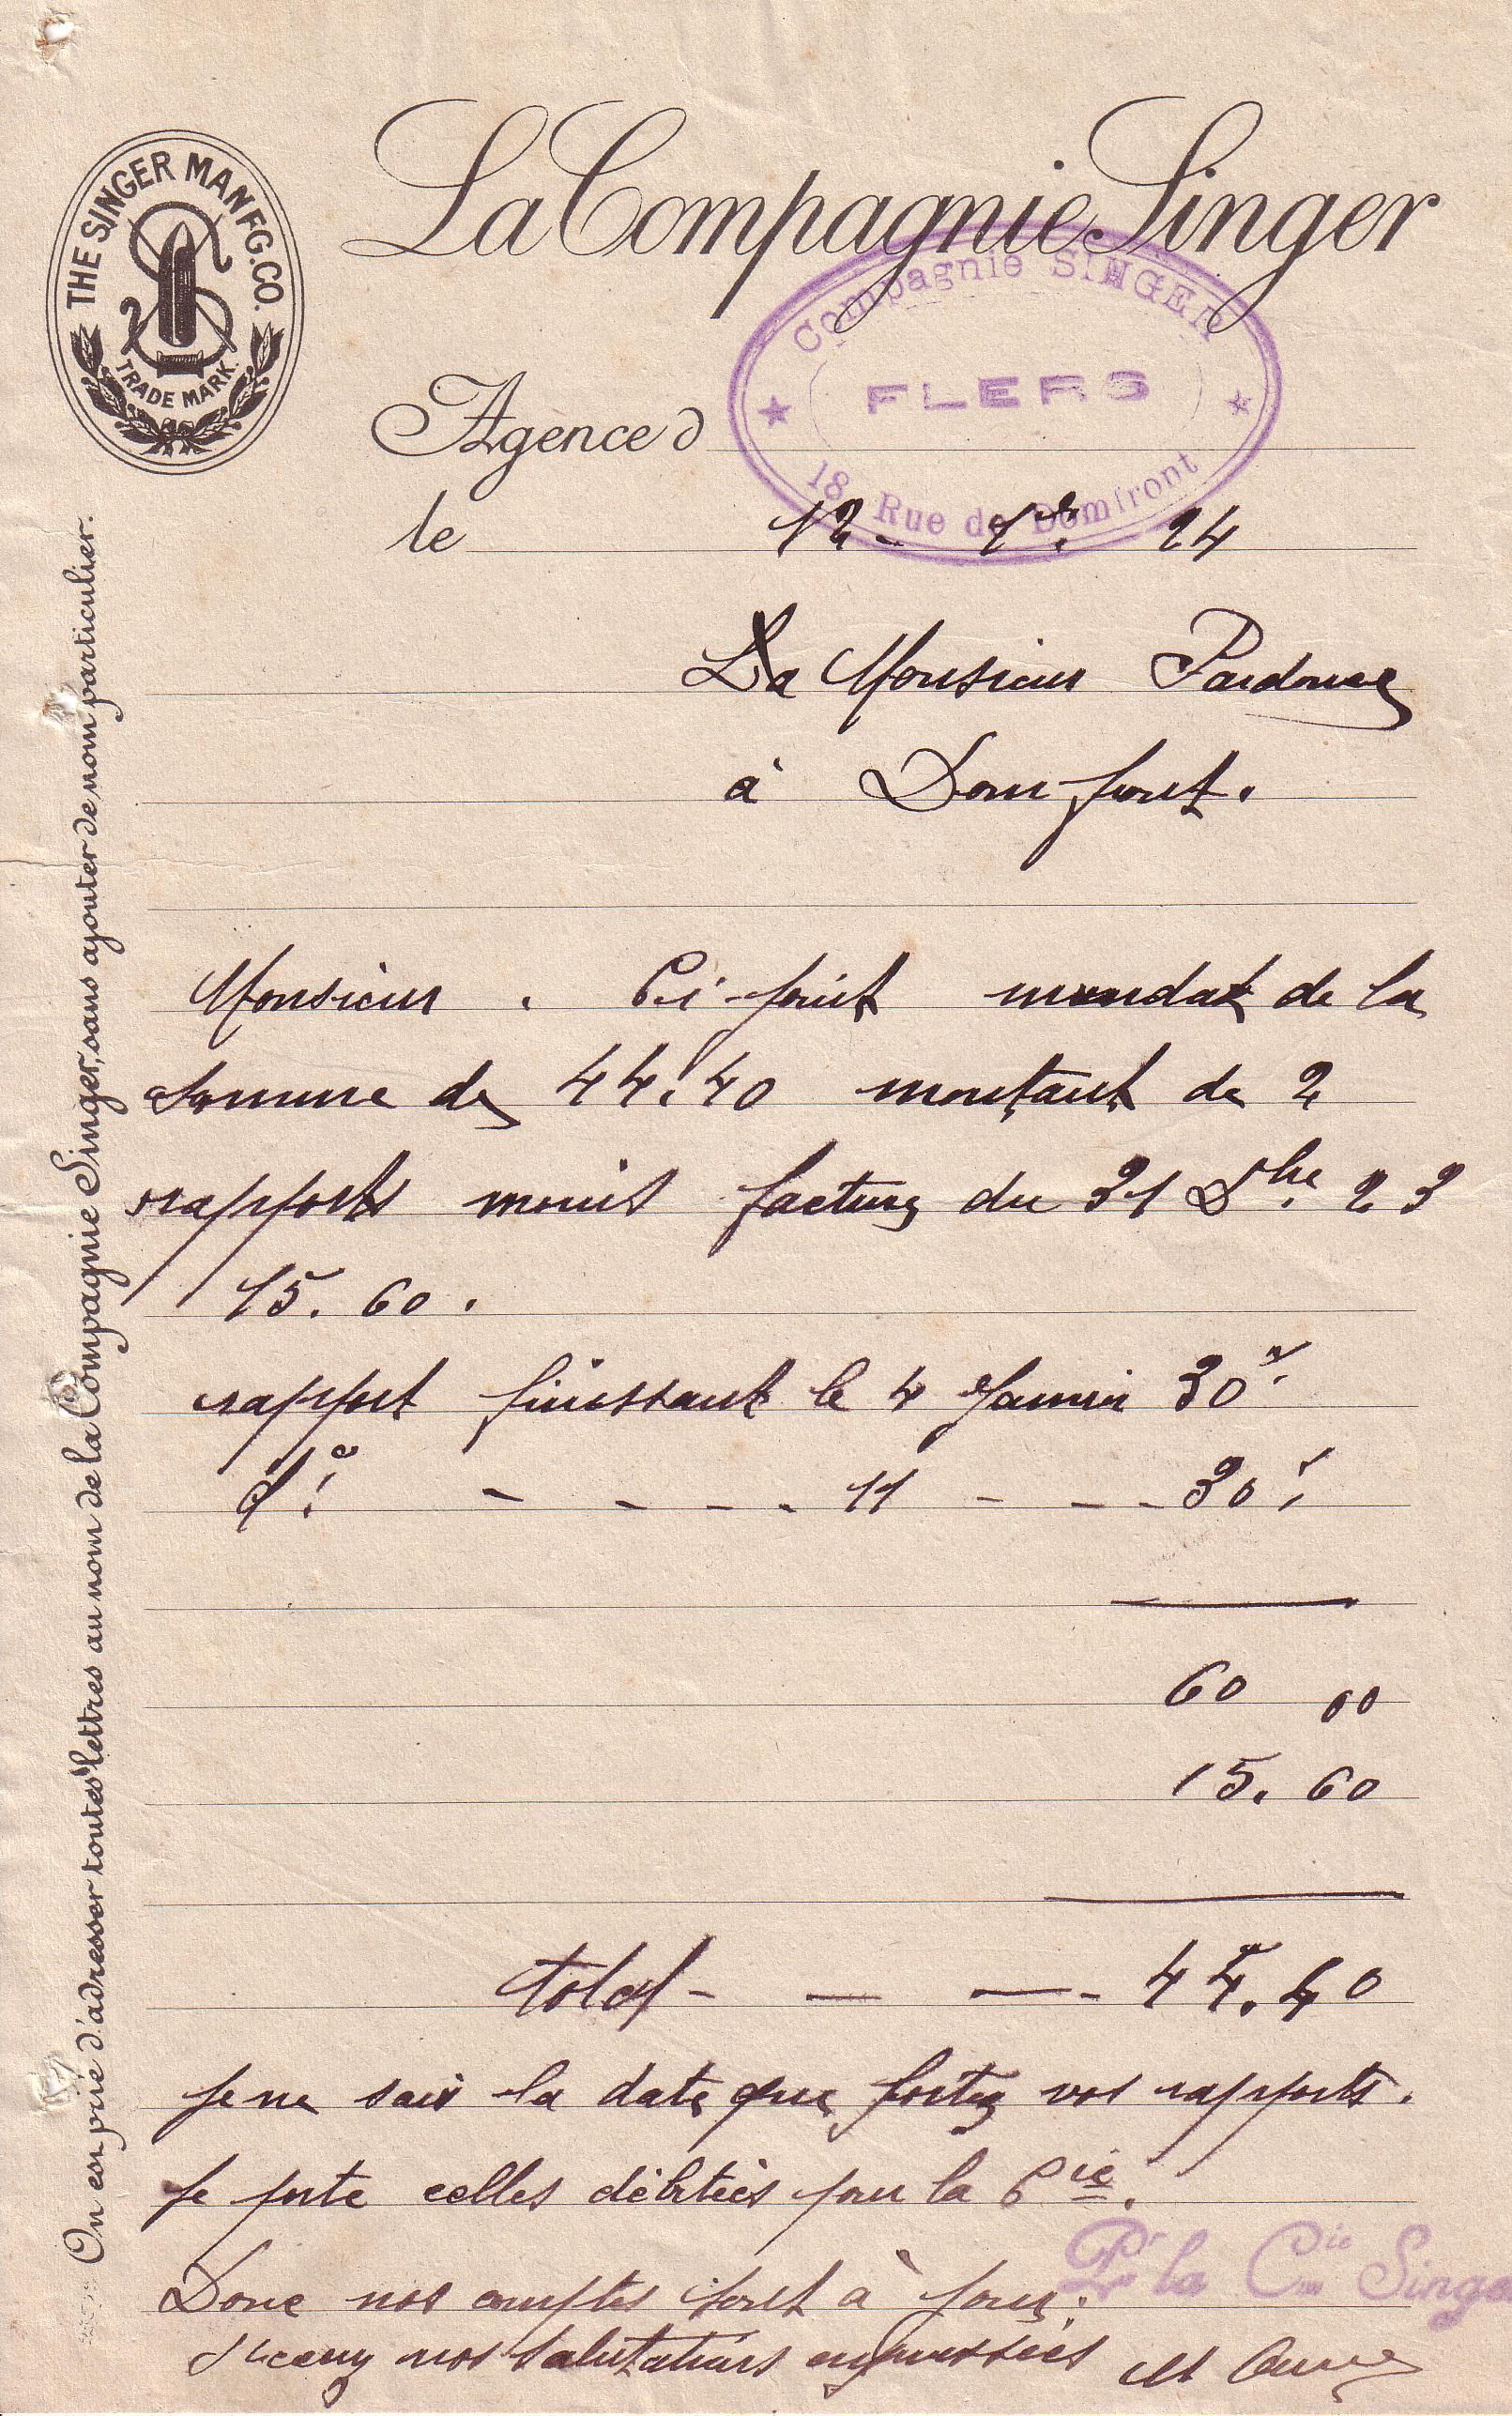 THE SINGER MANFG. CO.
TRADE MARK.
La Compagnie Singer
Compagnie SINGER
FLERS
18, Rue de Domfront
Agence d
le 12 - 1er. 24
La Monsieur
à Domfront.
Monsieur. Ci-joint mandat de la
somme de 44.40 montant de 2
rapports moins facture du 31 Dbre. 23
15.60.
rapport finissant le 4 Janvier 30f.
do. - - - - 11 - - - 30f.
60 00
15.60
total - - - - 44.40
Je ne sais la date que portez vos rapports.
Je porte celles débitées par la Cie.
Donc nos comptes sont à jour.
Pr la Cie Singe
Recevez nos salutations empressées
On est prié d'adresser toutes lettres au nom de la Compagnie Singer, sans ajouter de nom particulier.